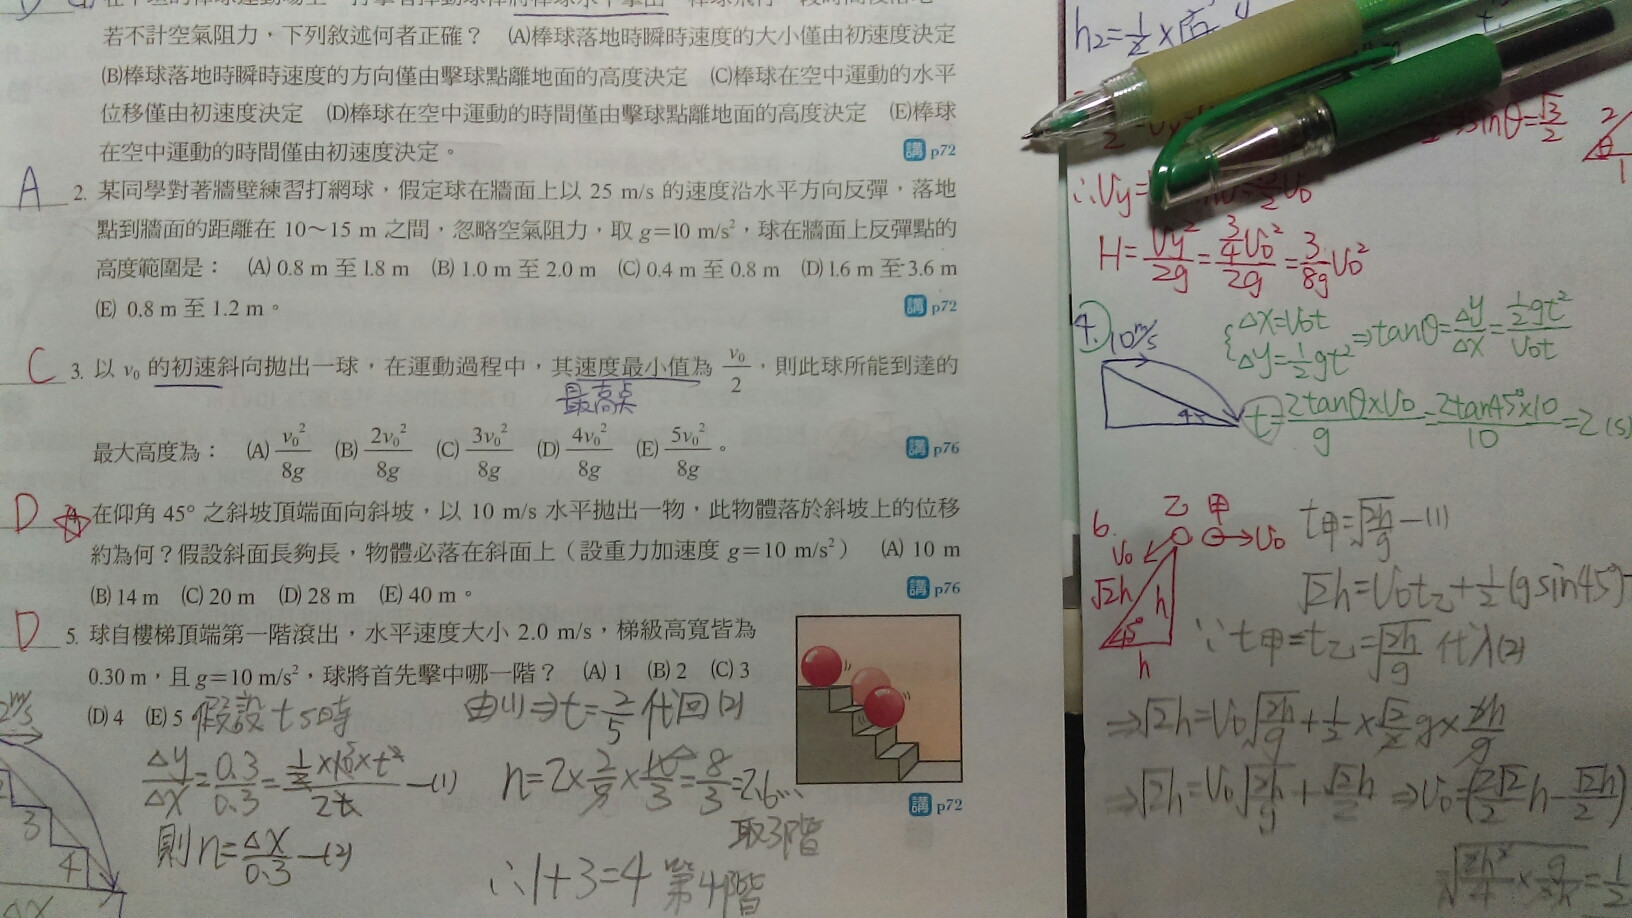 若不計空氣阻力，下列敘述何者正確？ (A)棒球落地時瞬時速度的大小僅由初速度決定
(B)棒球落地時瞬時速度的方向僅由擊球點離地面的高度決定 (C)棒球在空中運動的水平
位移僅由初速度決定 (D)棒球在空中運動的時間僅由擊球點離地面的高度決定 (E)棒球
在空中運動的時間僅由初速度決定。 講 p72
A 2. 某同學對著牆壁練習打網球，假定球在牆面上以 25 m/s 的速度沿水平方向反彈，落地
點到牆面的距離在 10～15 m 之間，忽略空氣阻力，取 g=10 m/s²，球在牆面上反彈點的
高度範圍是： (A) 0.8 m 至 1.8 m (B) 1.0 m 至 2.0 m (C) 0.4 m 至 0.8 m (D) 1.6 m 至 3.6 m
(E) 0.8 m 至 1.2 m。 講 p72
C 3. 以 v₀ 的初速斜向拋出一球，在運動過程中，其速度最小值為 v₀/2，則此球所能到達的
最高点
最大高度為： (A) v₀²/8g (B) 2v₀²/8g (C) 3v₀²/8g (D) 4v₀²/8g (E) 5v₀²/8g。 講 p76
D 4. 在仰角 45° 之斜坡頂端面向斜坡，以 10 m/s 水平拋出一物，此物體落於斜坡上的位移
約為何？假設斜面長夠長，物體必落在斜面上（設重力加速度 g=10 m/s²） (A) 10 m
(B) 14 m (C) 20 m (D) 28 m (E) 40 m。 講 p76
D 5. 球自樓梯頂端第一階滾出，水平速度大小 2.0 m/s，梯級高寬皆為
0.30 m，且 g=10 m/s²，球將首先擊中哪一階？ (A) 1 (B) 2 (C) 3
(D) 4 (E) 5
講 p72
假設 t 5時
Δy/Δx=0.3/0.3=½×10×t²/2t —(1)
則 n=Δx/0.3 —(2)
由(1)⇒t=2/5 代回(2)
n=2×2/5×10/3=8/3=2.6…
取3階
∴1+3=4 第4階
3
4
Δx
sinθ=√3/2
2
1
∴Vy=
H=Vy²/2g=¾V₀²/2g=3/8g V₀²
4. 10m/s
{Δx=V₀t
Δy=½gt² ⇒tanθ=Δy/Δx=½gt²/V₀t
45°
t=2tanθ×V₀/g=2tan45°×10/10=2(s)
6. 乙 甲
V₀ V₀
√2h h
45°
h
t甲=√(2h/g) —(1)
√2h=V₀t乙+½(gsin45°)
∵t甲=t乙=√(2h/g) 代入(2)
⇒√2h=V₀√(2h/g)+½×√2/2 g×2h/g
⇒√2h=V₀√(2h/g)+√2h/2 ⇒V₀=(2√2/2 h-√2h/2)